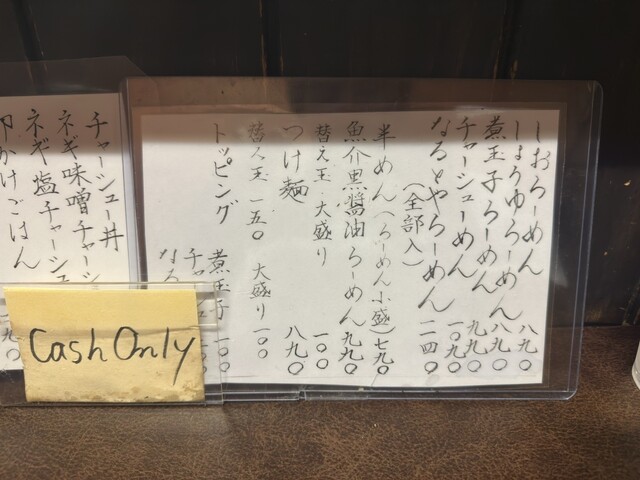 しおらーめん 八九〇
しょうゆらーめん 八九〇
煮玉子らーめん 九九〇
チャーシューめん 一〇九〇
なるとやらーめん 一二四〇
(全部入)
半めん(らーめん小盛)七九〇
魚介黒醤油らーめん 九九〇
替え玉・大盛り 一〇〇
つけ麺 八九〇
替え玉 一五〇 大盛り 一〇〇
トッピング 煮玉子 一〇〇
チャ
なる
チャーシュー丼
ネギ味噌チャーシュ
ネギ塩チャーシュ
卵かけごはん
Cash Only